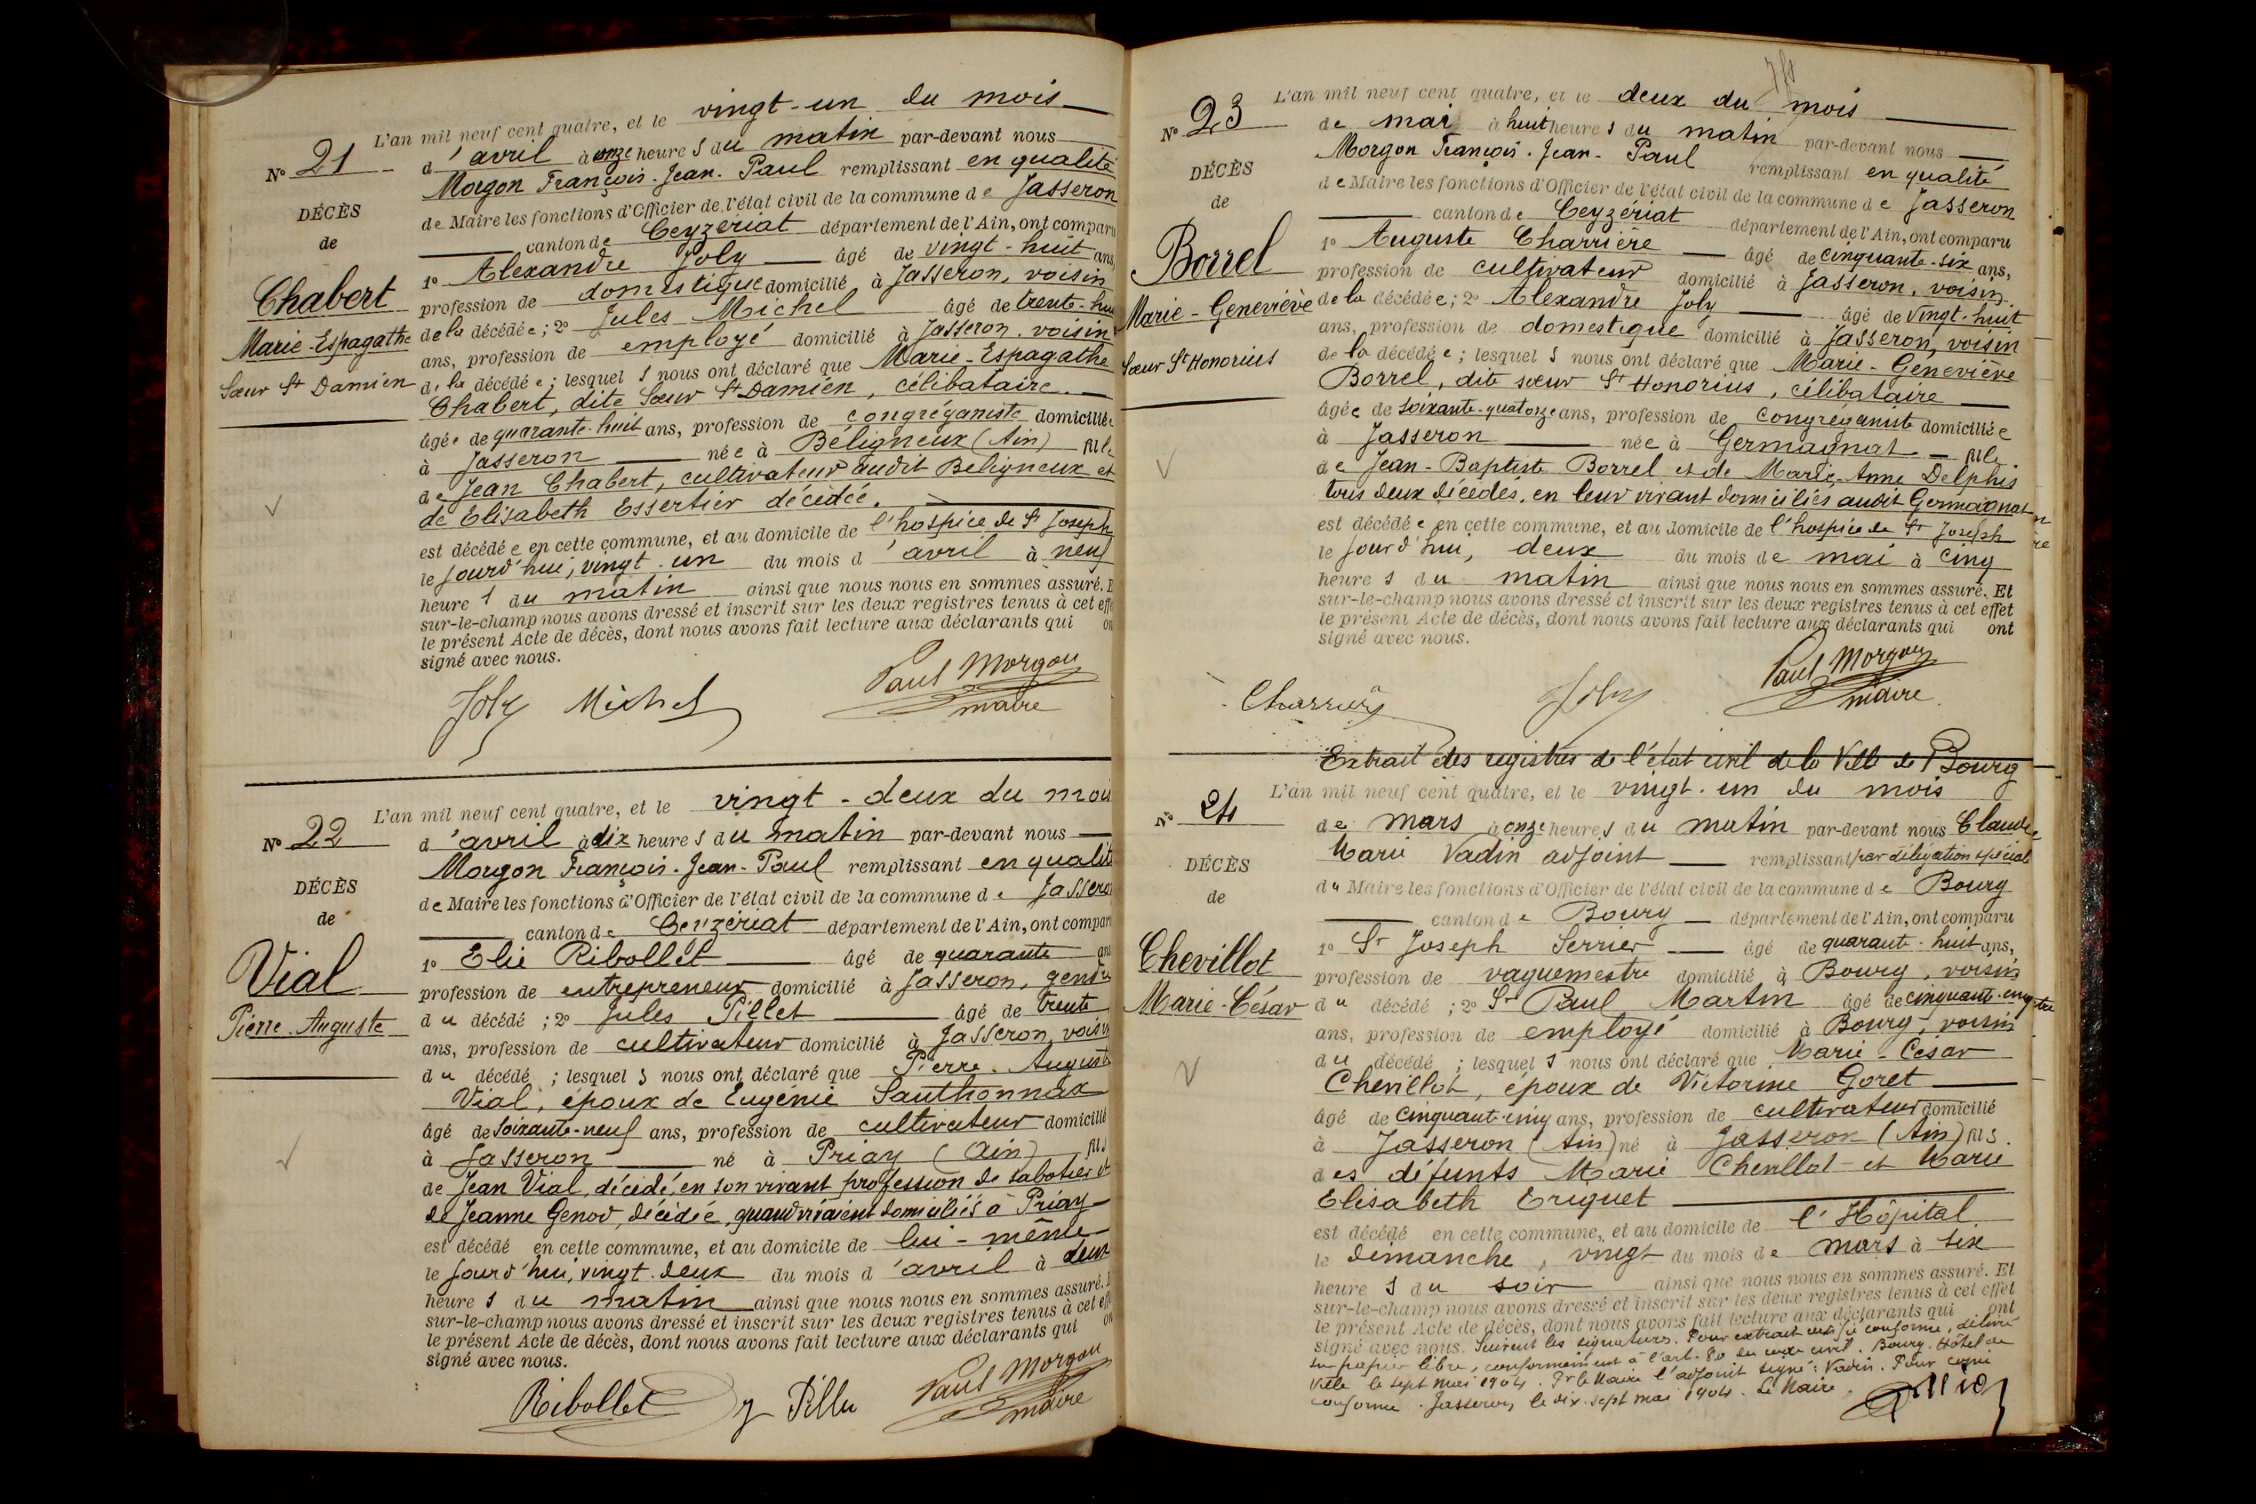 L'an mil neuf cent quatre, et le vingt-un du mois
N° 21
d'avril à onze heures du matin par-devant nous
Morgon François-Jean-Paul remplissant en qualité
DÉCÈS
de Maire les fonctions d'Officier de l'état civil de la commune de Jasseron
de
canton de Ceyzériat département de l'Ain, ont comparu
1° Alexandre Joly âgé de vingt-huit ans,
Chabert
profession de domestique domicilié à Jasseron, voisin
Marie-Espagathe
de la décédée; 2° Jules Michel âgé de trente-huit
ans, profession de employé domicilié à Jasseron, voisin
Sœur St Damien
de la décédée; lesquels nous ont déclaré que Marie-Espagathe
Chabert, dite Sœur St Damien, célibataire.
âgée de quarante-huit ans, profession de congréganiste domiciliée
à Jasseron née à Béligneux (Ain) fille
de Jean Chabert, cultivateur audit Béligneux et
de Elisabeth Essertier décédée.
est décédée en cette commune, et au domicile de l'hospice de St Joseph
le jourd'hui, vingt-un du mois d'avril à neuf
heures du matin ainsi que nous nous en sommes assuré. E
sur-le-champ nous avons dressé et inscrit sur les deux registres tenus à cet effe
le présent Acte de décès, dont nous avons fait lecture aux déclarants qui on
signé avec nous.
Joly Michel Paul Morgon
maire
L'an mil neuf cent quatre, et le vingt-deux du mois
N° 22
d'avril à dix heures du matin par-devant nous
Morgon François-Jean-Paul remplissant en qualité
DÉCÈS
de Maire les fonctions d'Officier de l'état civil de la commune de Jasseron
de
canton de Ceyzériat département de l'Ain, ont comparu
1° Elie Ribollet âgé de quarante ans
Vial
profession de entrepreneur domicilié à Jasseron, gendre
Pierre-Auguste
du décédé; 2° Jules Pillet âgé de trente
ans, profession de cultivateur domicilié à Jasseron, voisin
du décédé; lesquels nous ont déclaré que Pierre-Auguste
Vial, époux de Eugénie Sauthonnax
âgé de soixante-neuf ans, profession de cultivateur domicilié
à Jasseron né à Priay (Ain) fils
de Jean Vial, décédé, en son vivant profession de sabotier et
de Jeanne Genod, décédée, quand vivaient domiciliés à Priay
est décédé en cette commune, et au domicile de lui-même
le jourd'hui, vingt-deux du mois d'avril à deux
heures du matin ainsi que nous nous en sommes assuré. E
sur-le-champ nous avons dressé et inscrit sur les deux registres tenus à cet eff
le présent Acte de décès, dont nous avons fait lecture aux déclarants qui on
signé avec nous.
Ribollet J Pillet Paul Morgon
maire
L'an mil neuf cent quatre, et le deux du mois
N° 23
de mai à huit heures du matin par-devant nous
Morgon François-Jean-Paul remplissant en qualité
DÉCÈS
de Maire les fonctions d'Officier de l'état civil de la commune de Jasseron
de
canton de Ceyzériat département de l'Ain, ont comparu
1° Auguste Charrière âgé de cinquante-six ans,
Borrel
profession de cultivateur domicilié à Jasseron, voisin
Marie-Geneviève
de la décédée; 2° Alexandre Joly âgé de vingt-huit
ans, profession de domestique domicilié à Jasseron, voisin
Sœur St Honorius
de la décédée; lesquels nous ont déclaré que Marie-Geneviève
Borrel, dite sœur St Honorius, célibataire
âgée de soixante-quatorze ans, profession de congréganiste domiciliée
à Jasseron née à Germagnat fille
de Jean-Baptiste Borrel et de Marie-Anne Delphis
tous deux décédés, en leur vivant domiciliés audit Germagnat
est décédée en cette commune, et au domicile de l'hospice de St Joseph
le jourd'hui, deux du mois de mai à cinq
heures du matin ainsi que nous nous en sommes assuré. Et
sur-le-champ nous avons dressé et inscrit sur les deux registres tenus à cet effet
le présent Acte de décès, dont nous avons fait lecture aux déclarants qui ont
signé avec nous.
Charrière Joly Paul Morgon
maire
Extrait des registres de l'état civil de la Ville de Bourg
L'an mil neuf cent quatre, et le vingt-un du mois
N° 24
de mars à onze heures du matin par-devant nous Claude
Marie Vadin adjoint remplissant par délégation spéciale
DÉCÈS
du Maire les fonctions d'Officier de l'état civil de la commune de Bourg
de
canton de Bourg département de l'Ain, ont comparu
1° Sr Joseph Serrier âgé de quarante-huit ans,
Chevillot
profession de vaguemestre domicilié à Bourg, voisin
Marie-César
du décédé; 2° Sr Paul Martin âgé de cinquante-quatre
ans, profession de employé domicilié à Bourg, voisin
du décédé; lesquels nous ont déclaré que Marie-César
Chevillot, époux de Victorine Goret
âgé de cinquante-cinq ans, profession de cultivateur domicilié
à Jasseron (Ain) né à Jasseron (Ain) fils
des défunts Marie Chevillot et Marie
Elisabeth Eriguet
est décédé en cette commune, et au domicile de l'Hôpital
le dimanche, vingt du mois de mars à six
heures du soir ainsi que nous nous en sommes assuré. Et
sur-le-champ nous avons dressé et inscrit sur les deux registres tenus à cet effet
le présent Acte de décès, dont nous avons fait lecture aux déclarants qui ont
signé avec nous. Suivent les signatures. Pour extrait certifié conforme, délivré
sur papier libre, conformément à l'art. 80 du code civil. Bourg. Hôtel de
Ville le sept mai 1904. Pr le Maire l'adjoint signé: Vadin. Pour copie
conforme. Jasseron, le dix-sept mai 1904. Le Maire,